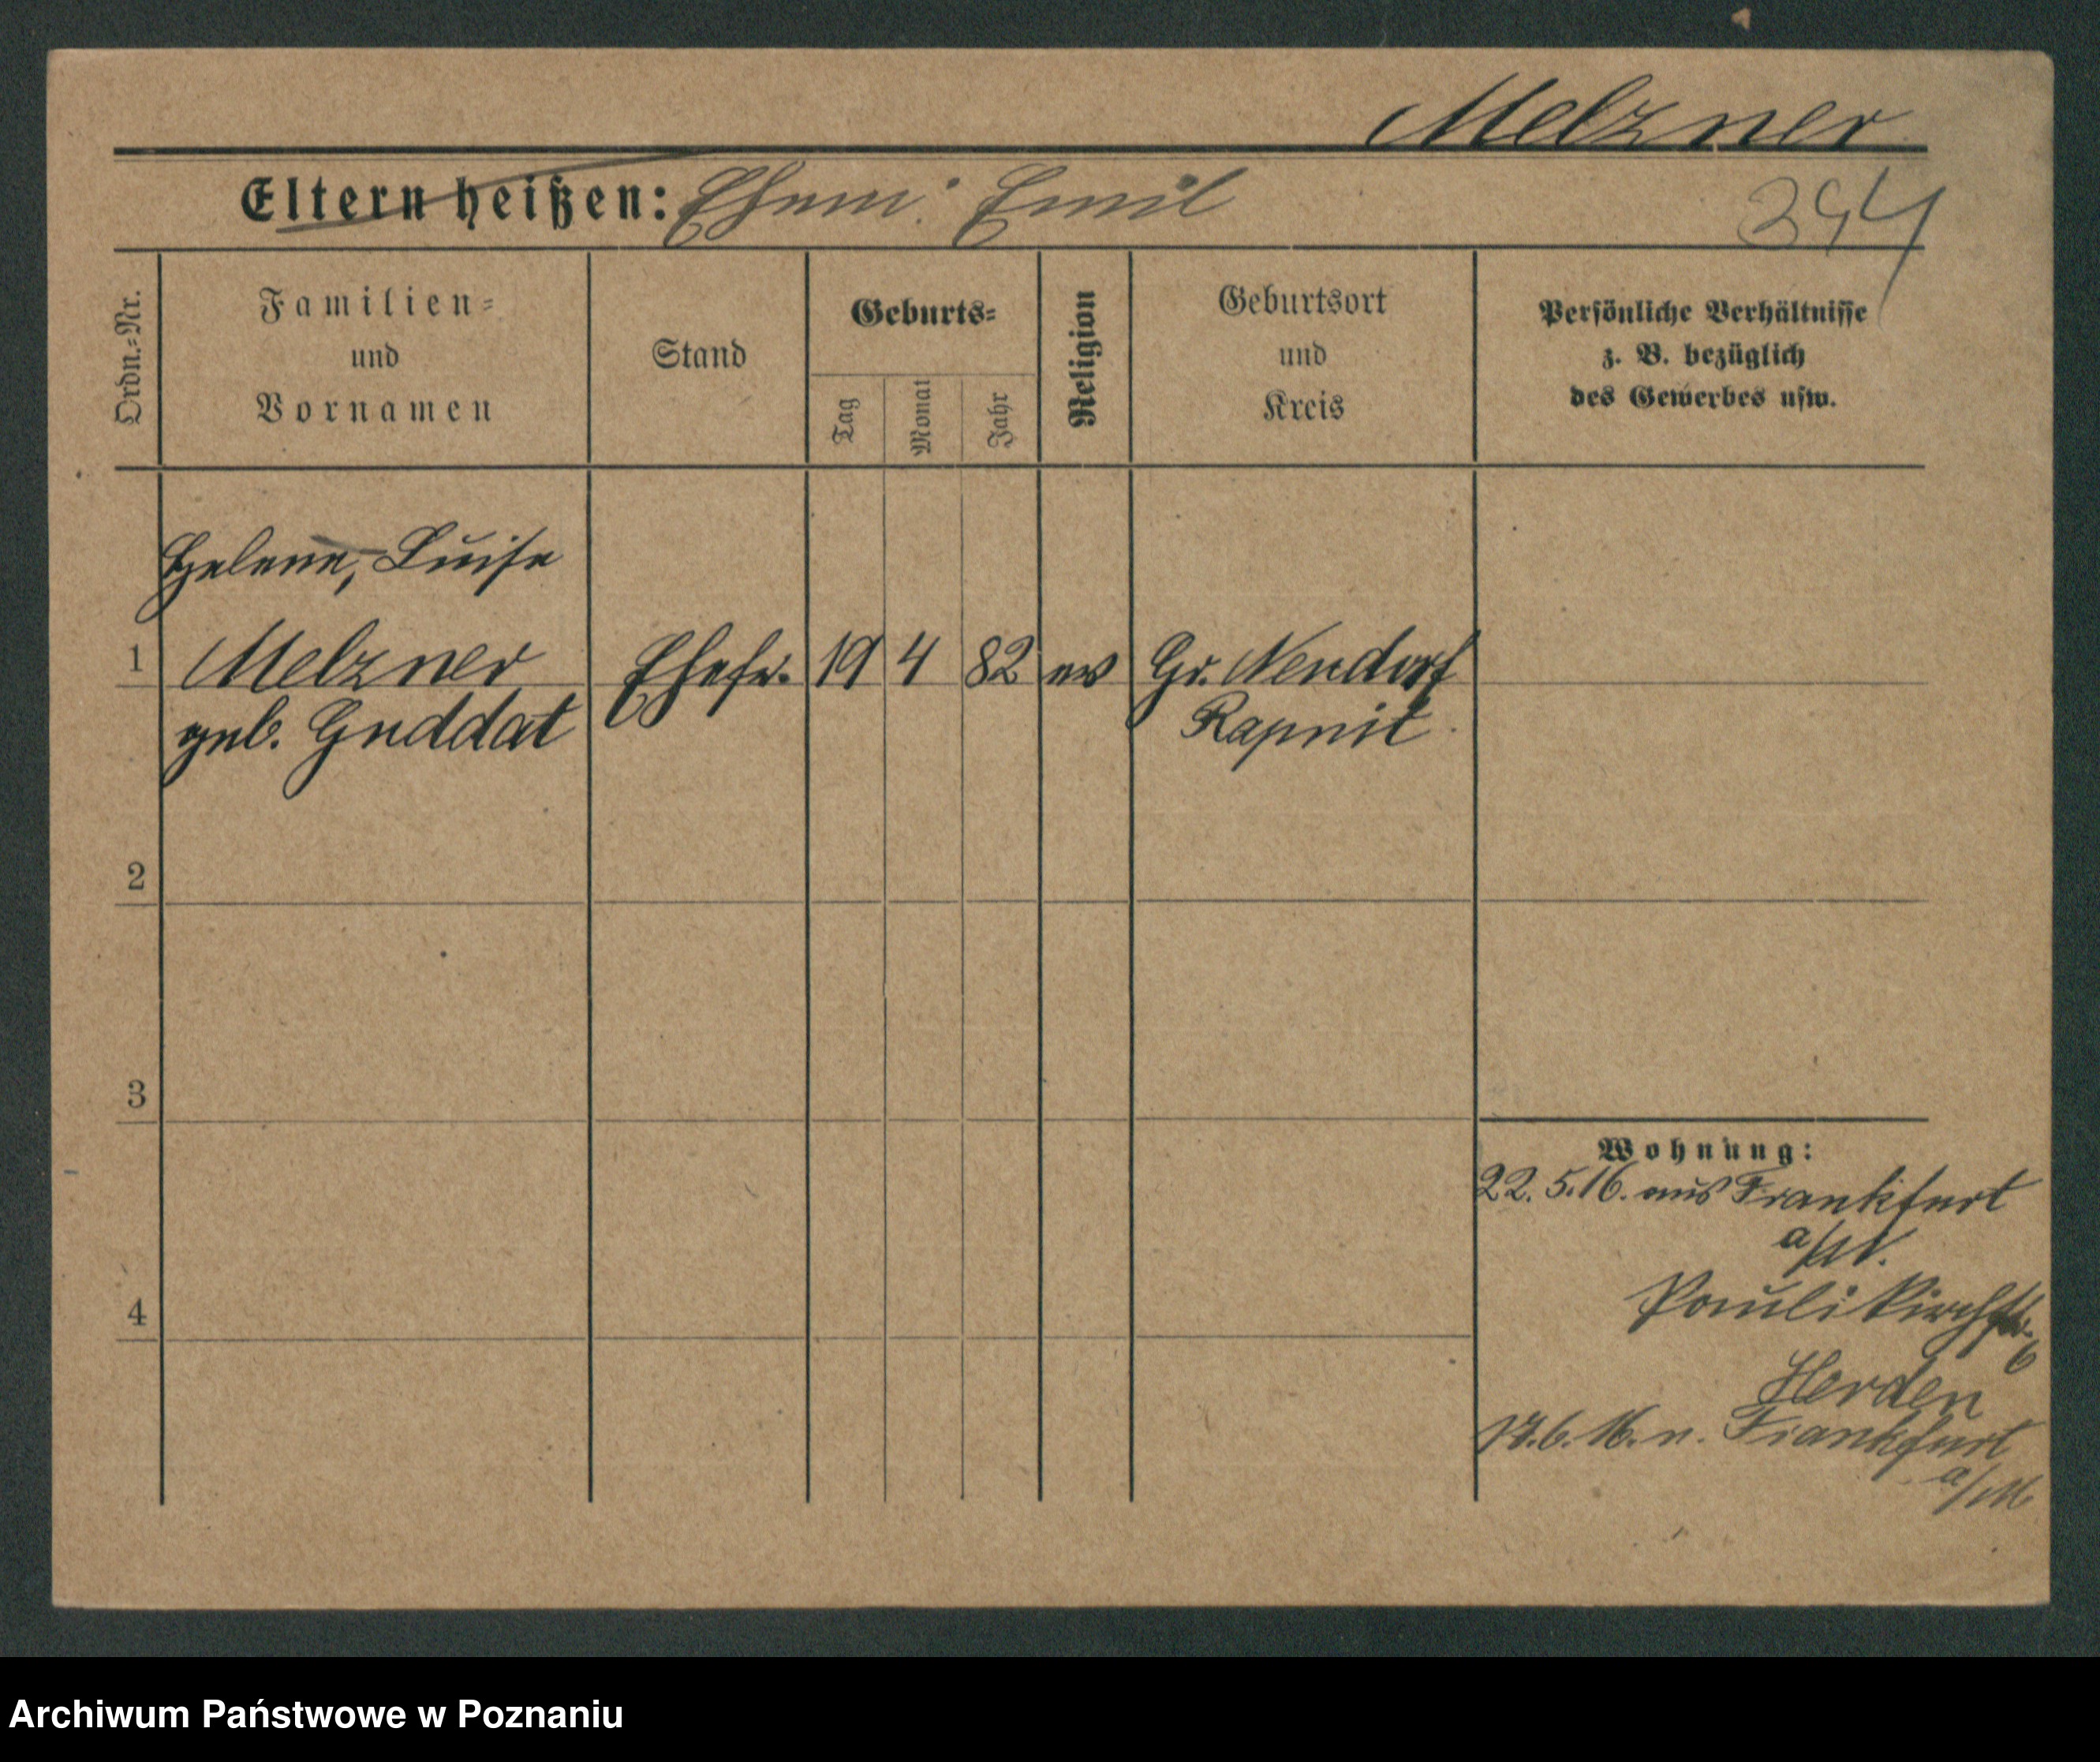 Melzner
Eltern heißen: Ehem: Emil
394
Ordn.=Nr.
Familien=
und
Vornamen
Stand
Geburts=
Tag
Monat
Jahr
Religion
Geburtsort
und
Kreis
Persönliche Verhältnisse
z. B. bezüglich
des Gewerbes usw.
Helene, Luise
1 Melzner Ehefr. 19 4 82 ev Gr. Neudorf
geb. Guddat Ragnit
2
3
4
Wohnung:
22. 5. 16. aus Frankfurt
a/M.
Paulikirchstr.
6
Herden
17. 6. 16. n. Frankfurt
a/M
Archiwum Państwowe w Poznaniu